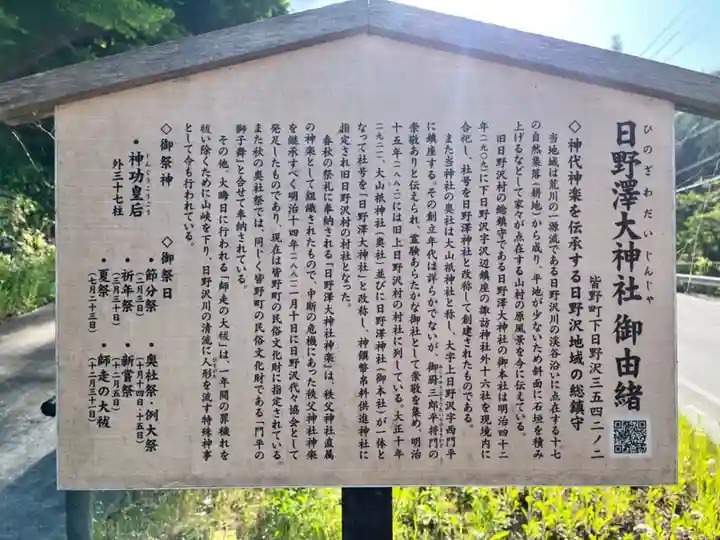 日野澤大神社 御由緒
ひのざわだいじんじゃ
皆野町下日野沢三五四二ノ二
◇神代神楽を伝承する日野沢地域の総鎮守
当地域は荒川の一源流である日野沢川の渓谷沿いに点在する十七
の自然集落(耕地)から成り、平地が少ないため斜面に石垣を積み
上げるなどして家々が点在する山村の原風景を今に伝えている。
旧日野沢村の総鎮守である日野澤大神社の御本社は明治四十二
年(一九〇九)に下日野沢字沢辺鎮座の諏訪神社外十六社を現境内に
合祀し、社号を日野澤神社と改称して創建されたものである。
また当神社の奥社は大山祇神社と称し、大字上日野沢字西門平
に鎮座する。その創立年代は詳らかでないが、御厨三郎平将門の
崇敬ありと伝えられ、霊験あらたかな御社として崇敬を集め、明治
十五年(一八八二)には旧上日野沢村の村社に列している。大正十年
(一九二一)、大山祇神社(奥社)並びに日野澤神社(御本社)が一体と
なって社号を「日野澤大神社」と改称し、神饌幣帛料供進神社に
指定され旧日野沢村の村社となった。
春秋の祭礼に奉納される「日野澤大神社神楽」は、秩父神社直属
の神楽として組織されたもので、中断の危機にあった秩父神社神楽
を継承すべく明治十四年(一八八一)十月に日野沢代々協会として
発足したものであり、現在は皆野町の民俗文化財に指定されている。
また秋の奥社祭では、同じく皆野町の民俗文化財である「門平の
獅子舞」と合せて奉納されている。
その他、大晦日に行われる「師走の大祓」は、一年間の罪穢れを
祓い除くために山峡を下り、日野沢川の清流に人形を流す特殊神事
として今も行われている。
◇御祭神
じんぐうこうごう
・神功皇后
外三十七柱
◇御祭日
・節分祭
(二月三日)
・祈年祭
(三月三十日)
・夏祭
(七月二十三日)
・奥社祭・例大祭
(十月十四・十五日)
・新嘗祭
(十二月五日)
・師走の大祓
(十二月三十一日)